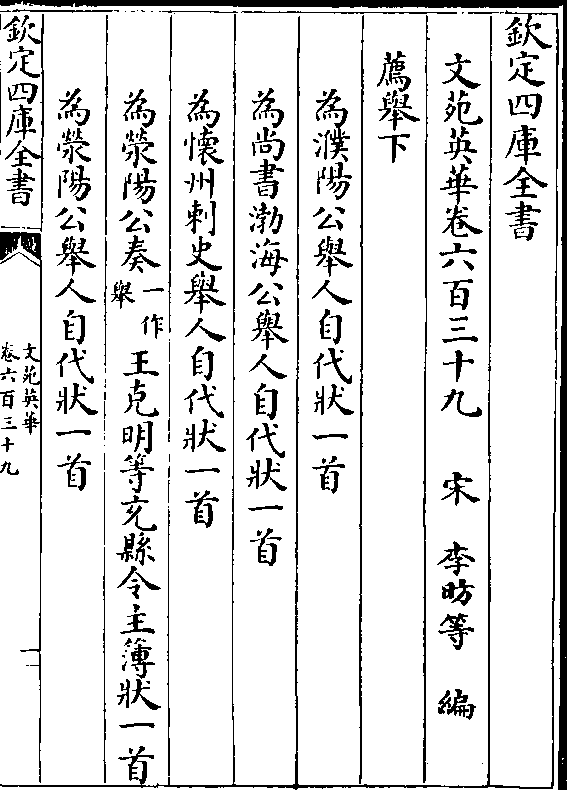 欽定四庫全書
文苑英華卷六百三十九　宋　李昉等　編
薦舉下
為濮陽公舉人自代狀一首
為尚書渤海公舉人自代狀一首
為懷州刺史舉人自代狀一首
為滎陽公奏一作舉王克明等充縣令主簿狀一首
為滎陽公舉人自代狀一首
欽定四庫全書
文苑英華
卷六百三十九
一